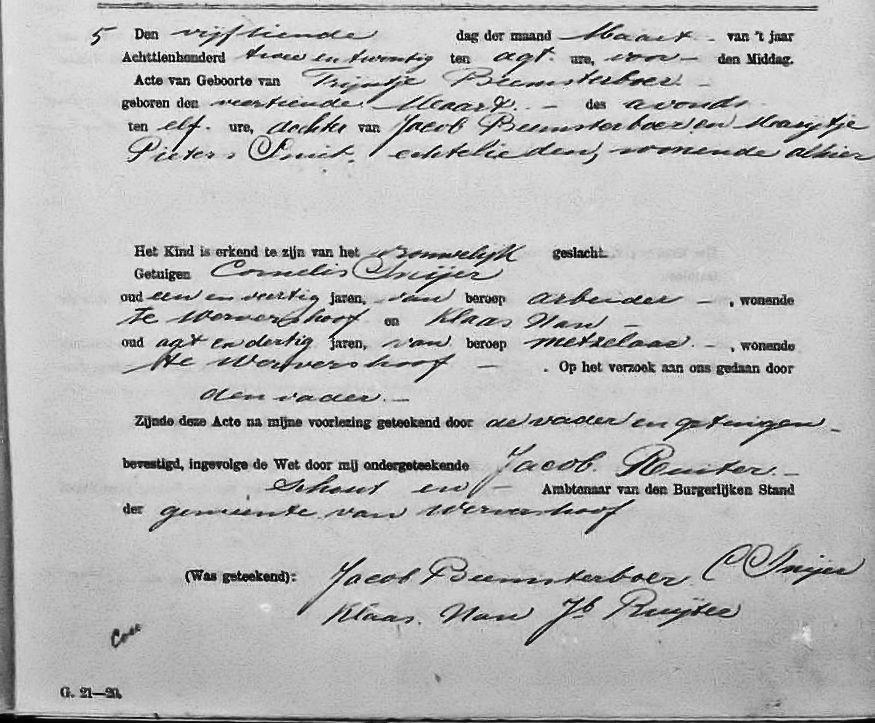 5 Den vijftiende dag der maand Maart van 't jaar
Achttienhonderd twee en twentig ten agt ure, voor den Middag.
Acte van Geboorte van Trijntje Beemsterboer
geboren den veertiende Maart des avonds
ten elf ure, dochter van Jacob Beemsterboer en Maartje
Pieters Smit, echtelieden, wonende alhier
Het Kind is erkend te zijn van het vrouwelijk geslacht.
Getuigen Cornelis Snijer
oud een en veertig jaren, van beroep arbeider, wonende
te Wervershoof en Klaas Nan
oud agt en dertig jaren, van beroep metzelaar, wonende
te Wervershoof. Op het verzoek aan ons gedaan door
den vader.
Zijnde deze Acte na mijne voorlezing geteekend door de vader en getuigen
bevestigd, ingevolge de Wet door mij ondergeteekende Jacob Ruiter
Schout en Ambtenaar van den Burgerlijken Stand
der gemeente van Wervershoof
(Was geteekend): Jacob Beemsterboer C Snijer
Klaas Nan Jb Ruijter
G. 21—20.